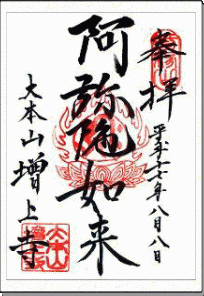 奉拝
平成二十七年八月八日
阿弥陀如来
大本山增上寺